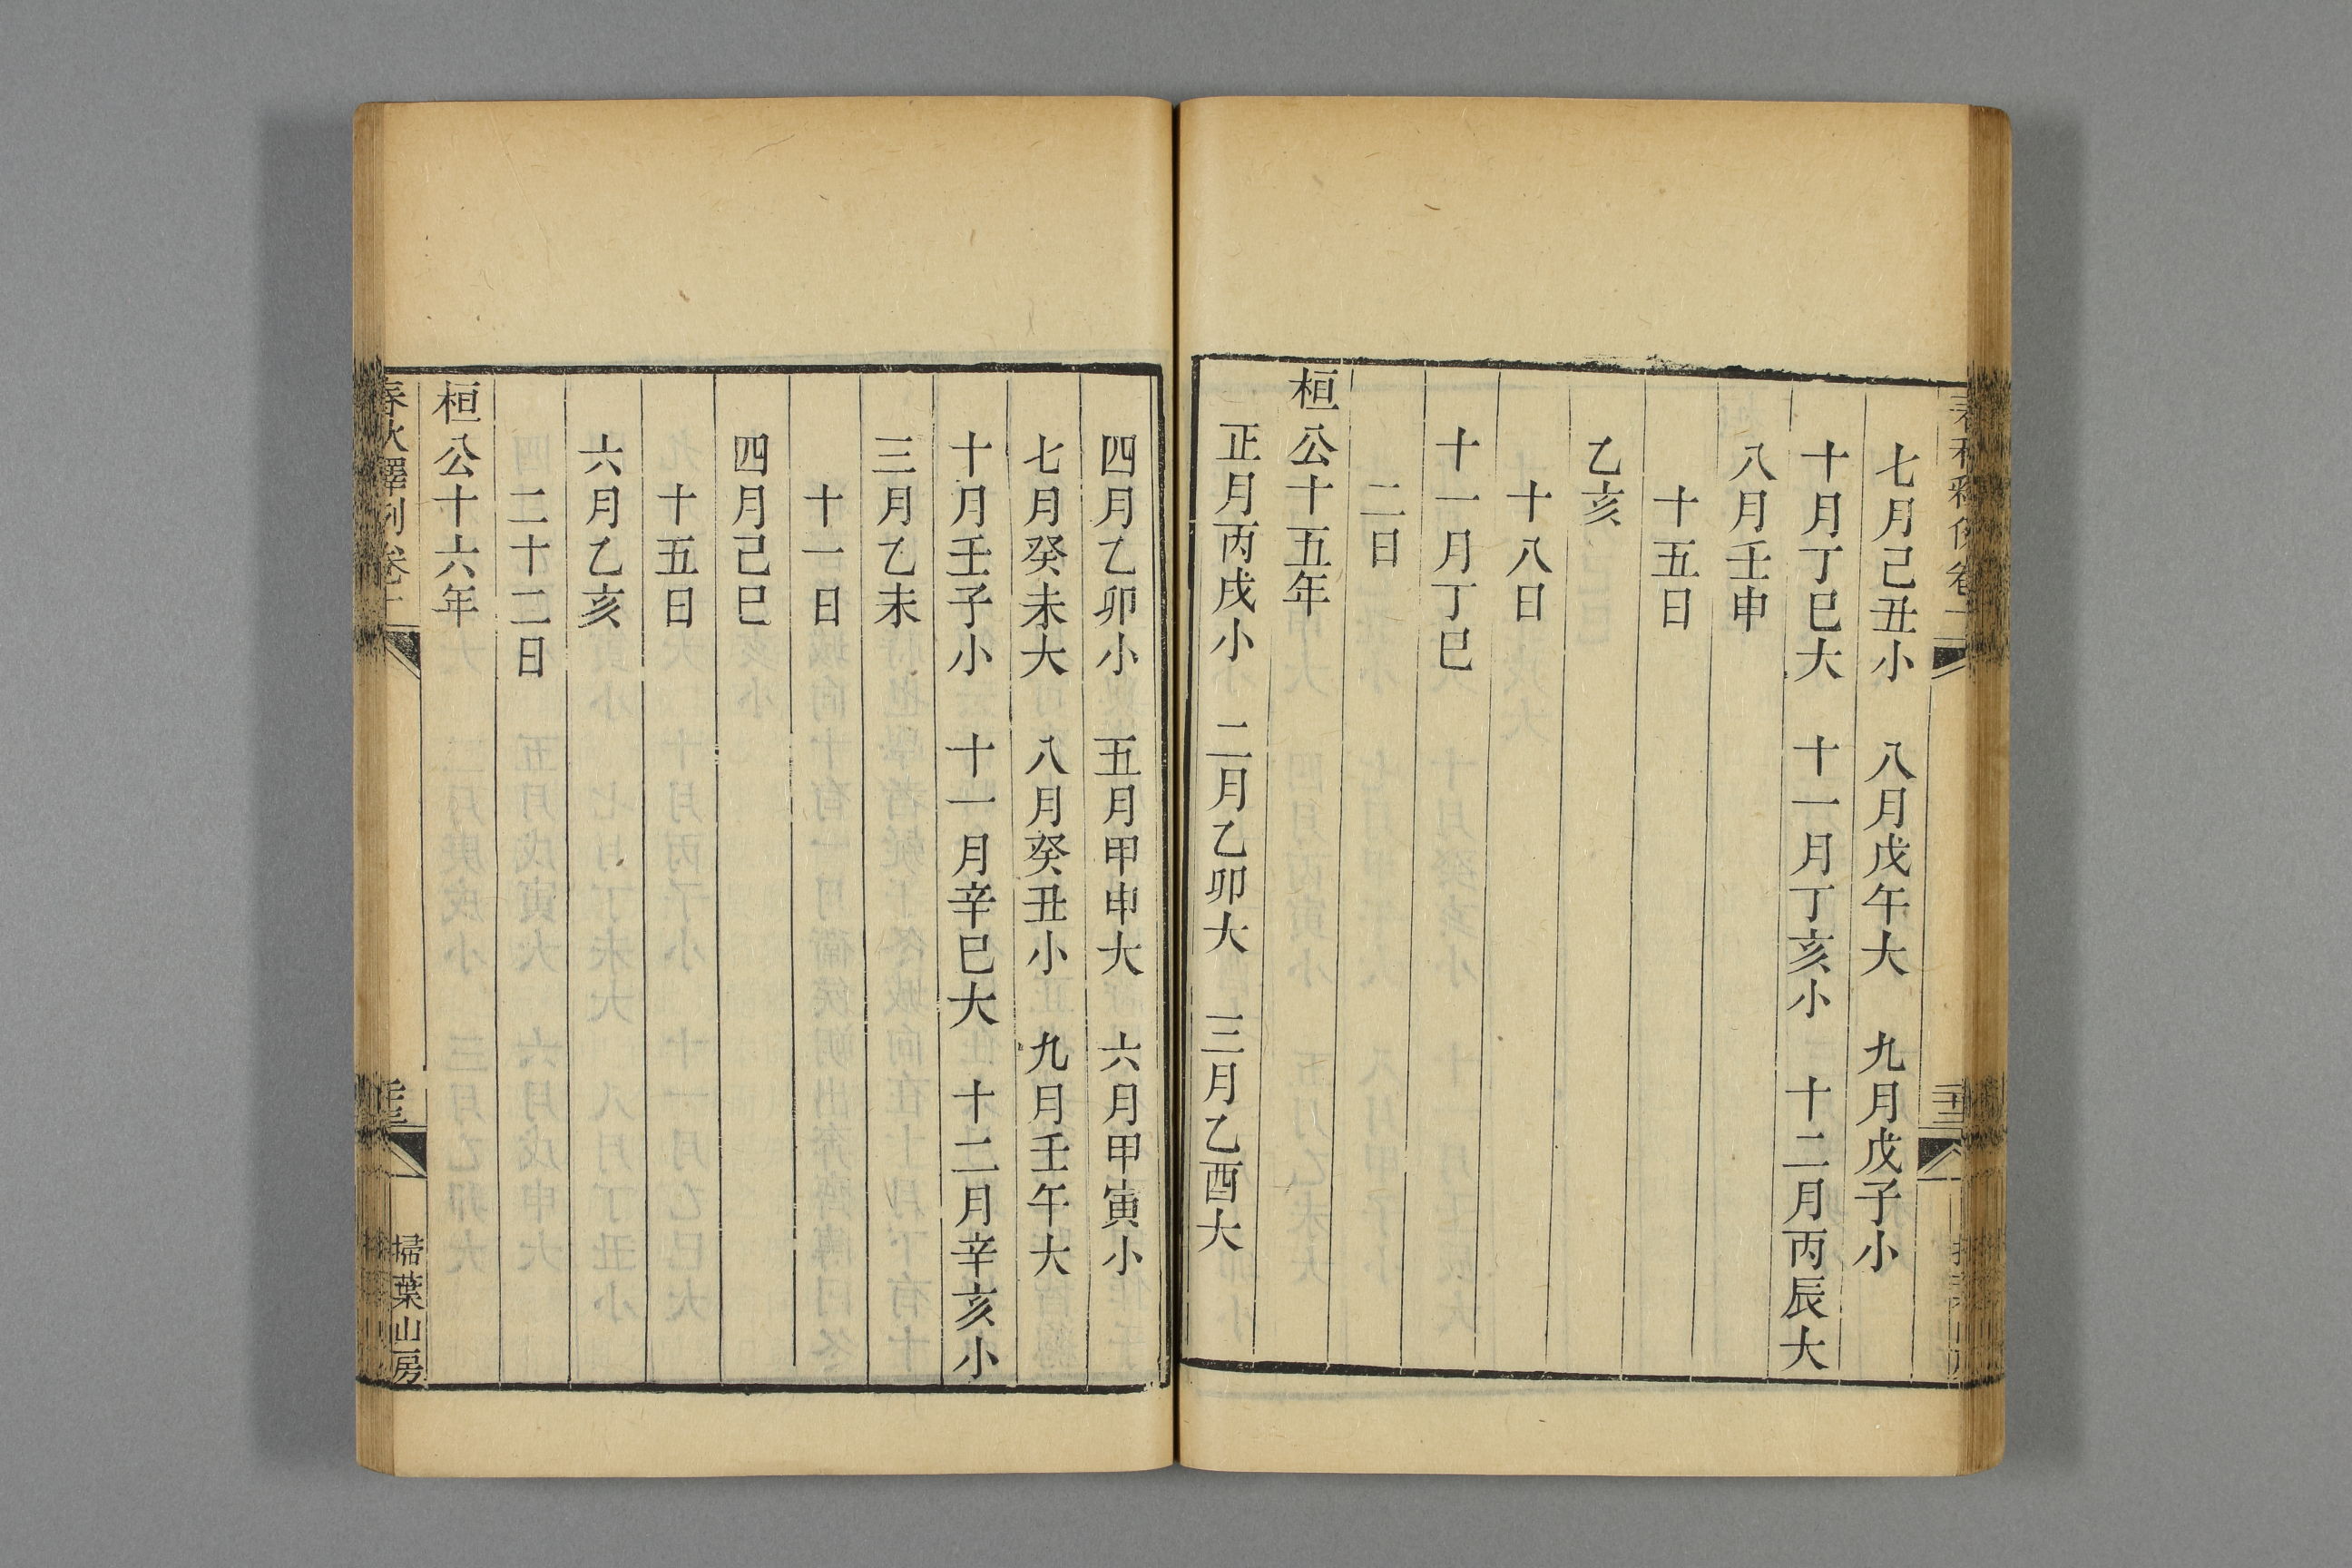 七月己丑小　八月戊午大　九月戊子小
十月丁巳大　十一月丁亥小　十二月丙辰大
八月壬申
十五日
乙亥
十八日
十一月丁巳
二日
桓公十五年
正月丙戌小　二月乙卯大　三月乙酉大
四月乙卯小　五月甲申大　六月甲寅小
七月癸未大　八月癸丑小　九月壬午大
十月壬子小　十一月辛巳大　十二月辛亥小
三月乙未
十一日
四月己巳
十五日
六月乙亥
二十二日
桓公十六年
春秋釋例卷十
掃葉山房